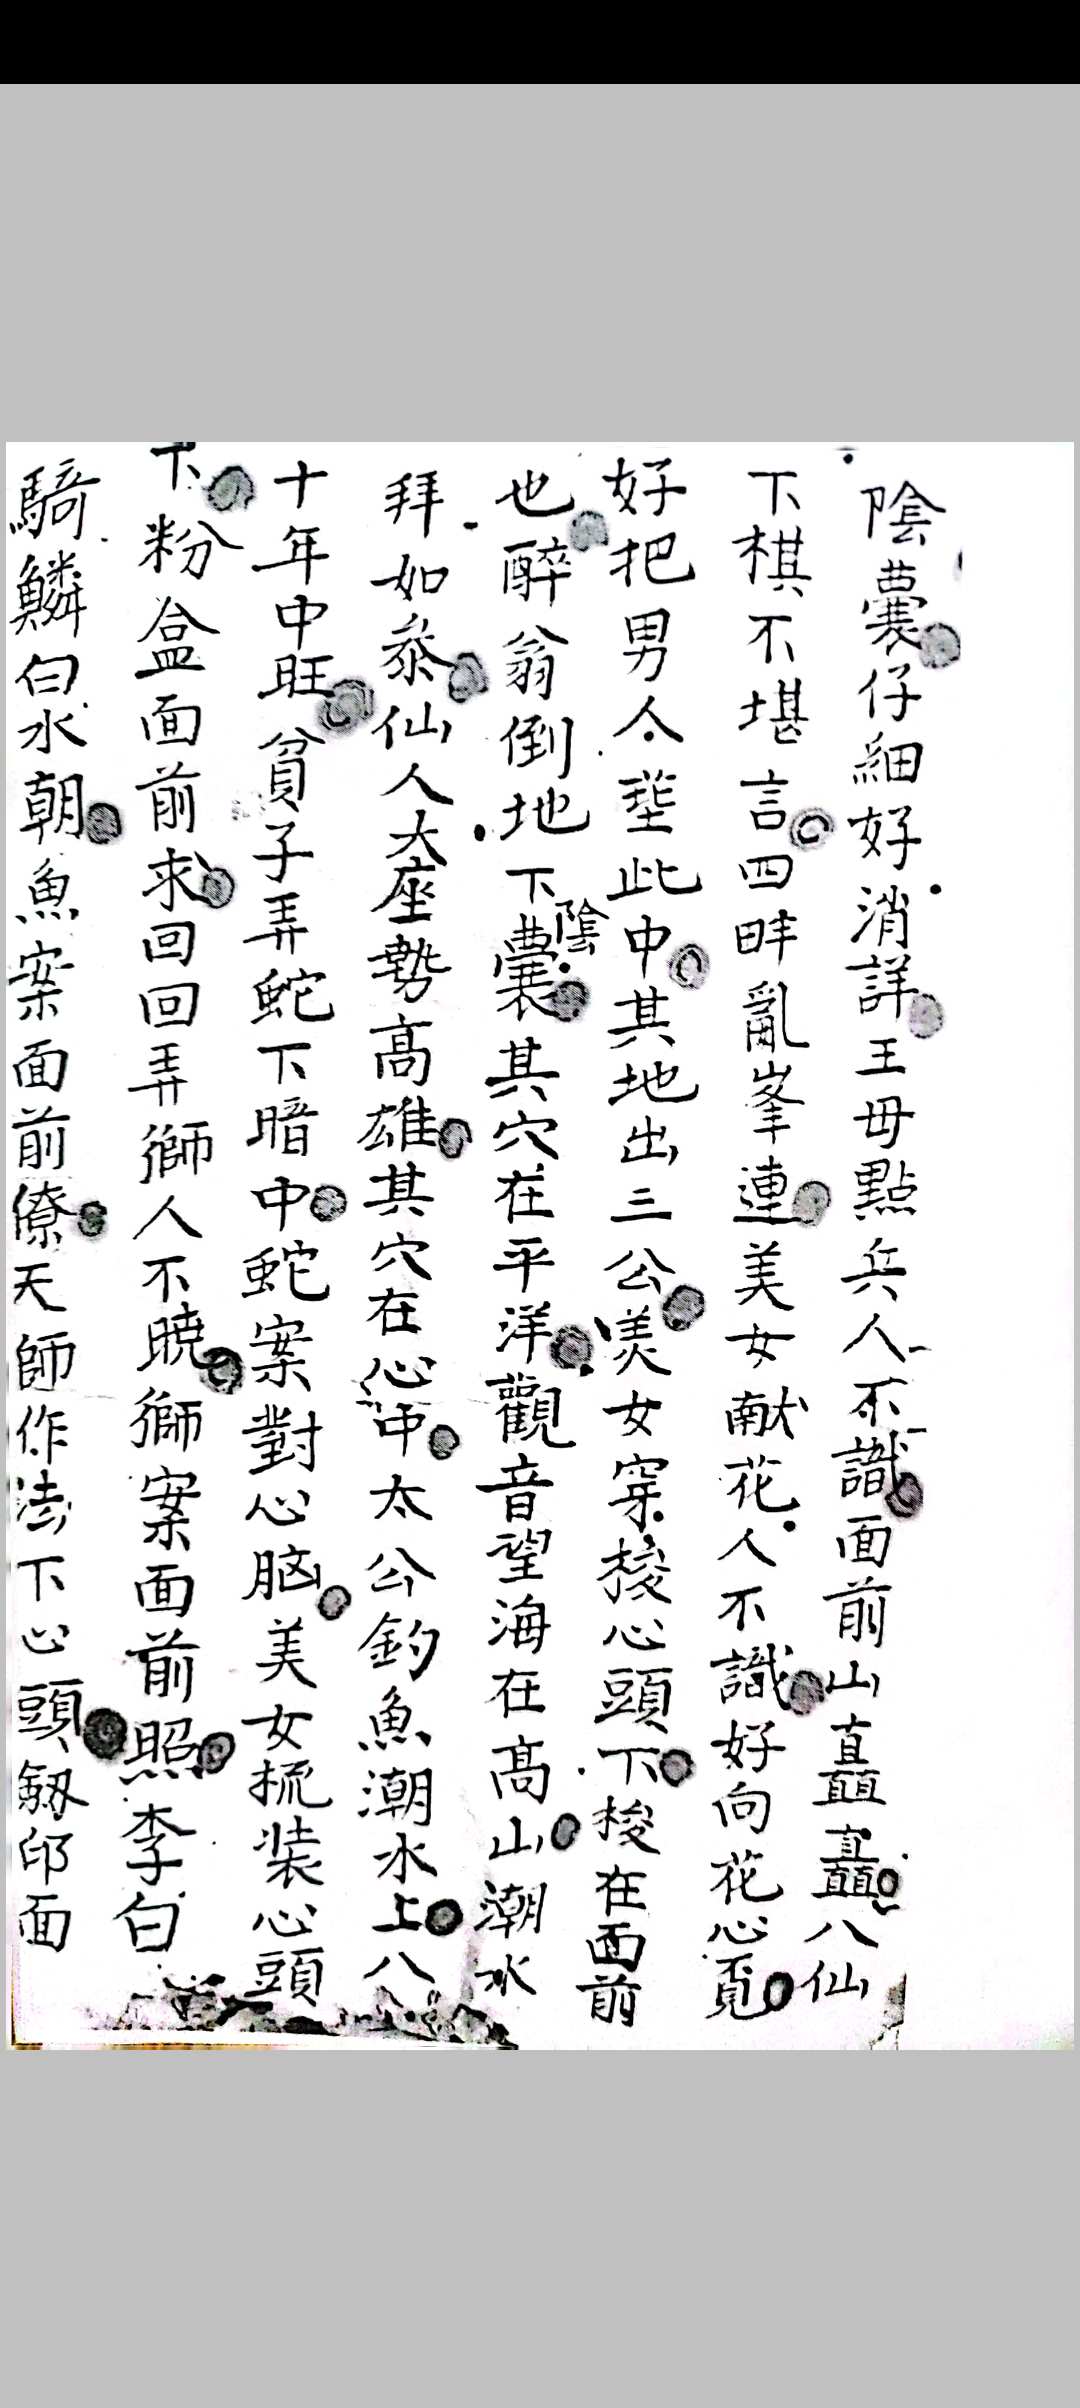 陰囊仔細好消詳王母點兵人不識面前山直矗矗八仙
下棋不堪言四畔亂峯連美女献花人不識好向花心覓
好把男人塟此中其地出三公美女穿梭心頭下梭在面前
也醉翁倒地下陰囊其穴在平洋觀音望海在高山潮水
拜如叅仙人大座勢高雄其穴在心中太公釣魚潮水上八
十年中旺貧子弄蛇下暗中蛇案對心脑美女梳装心頭
下粉盒面前求回回弄獅人不曉獅案面前照李白
騎鱗白水朝魚案面前僚天師作法下心頭劔印面